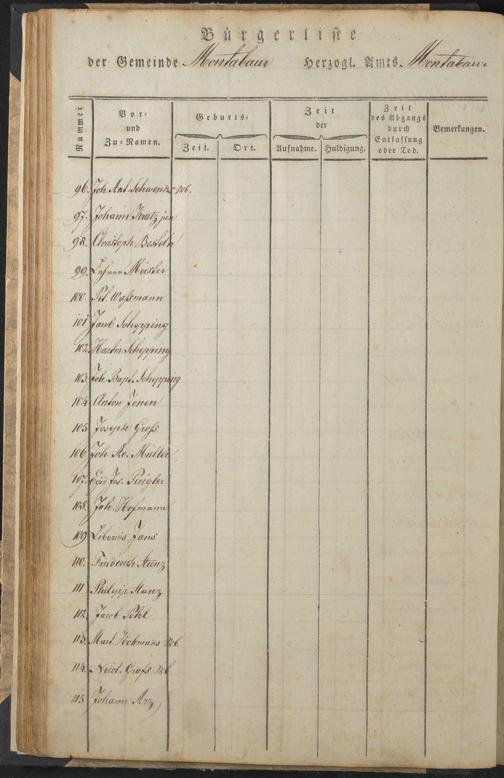 Bürgerliste
der Gemeinde Montabaur Herzogl. Amts. Montabaur
Nummer
Vor- und Zu-Namen.
Geburts-
Zeit. Ort.
Zeit der
Aufnahme. Huldigung.
Zeit des Abgangs durch Entlassung oder Tod.
Bemerkungen.
96. Joh. Ant. Schwenk Wb.
97. Johann Kratz jun
98. Christoph
99. Meister
100. Pet. Waßmann
101 Jacob Schepping
102. Schepping
103. Joh. Bapt. Schepping
104. Anton Jonen
105 Joseph Groß
106 Joh. Müller
107. Jos. Pingler
108. Joh. Hofmann
109 Jans
110. Friederich Stunz
111 Philipp Stunz
112. Jacob Pohl
113. Mart. Wb.
114. Nicol. Groß Wb
115. Johann Arz